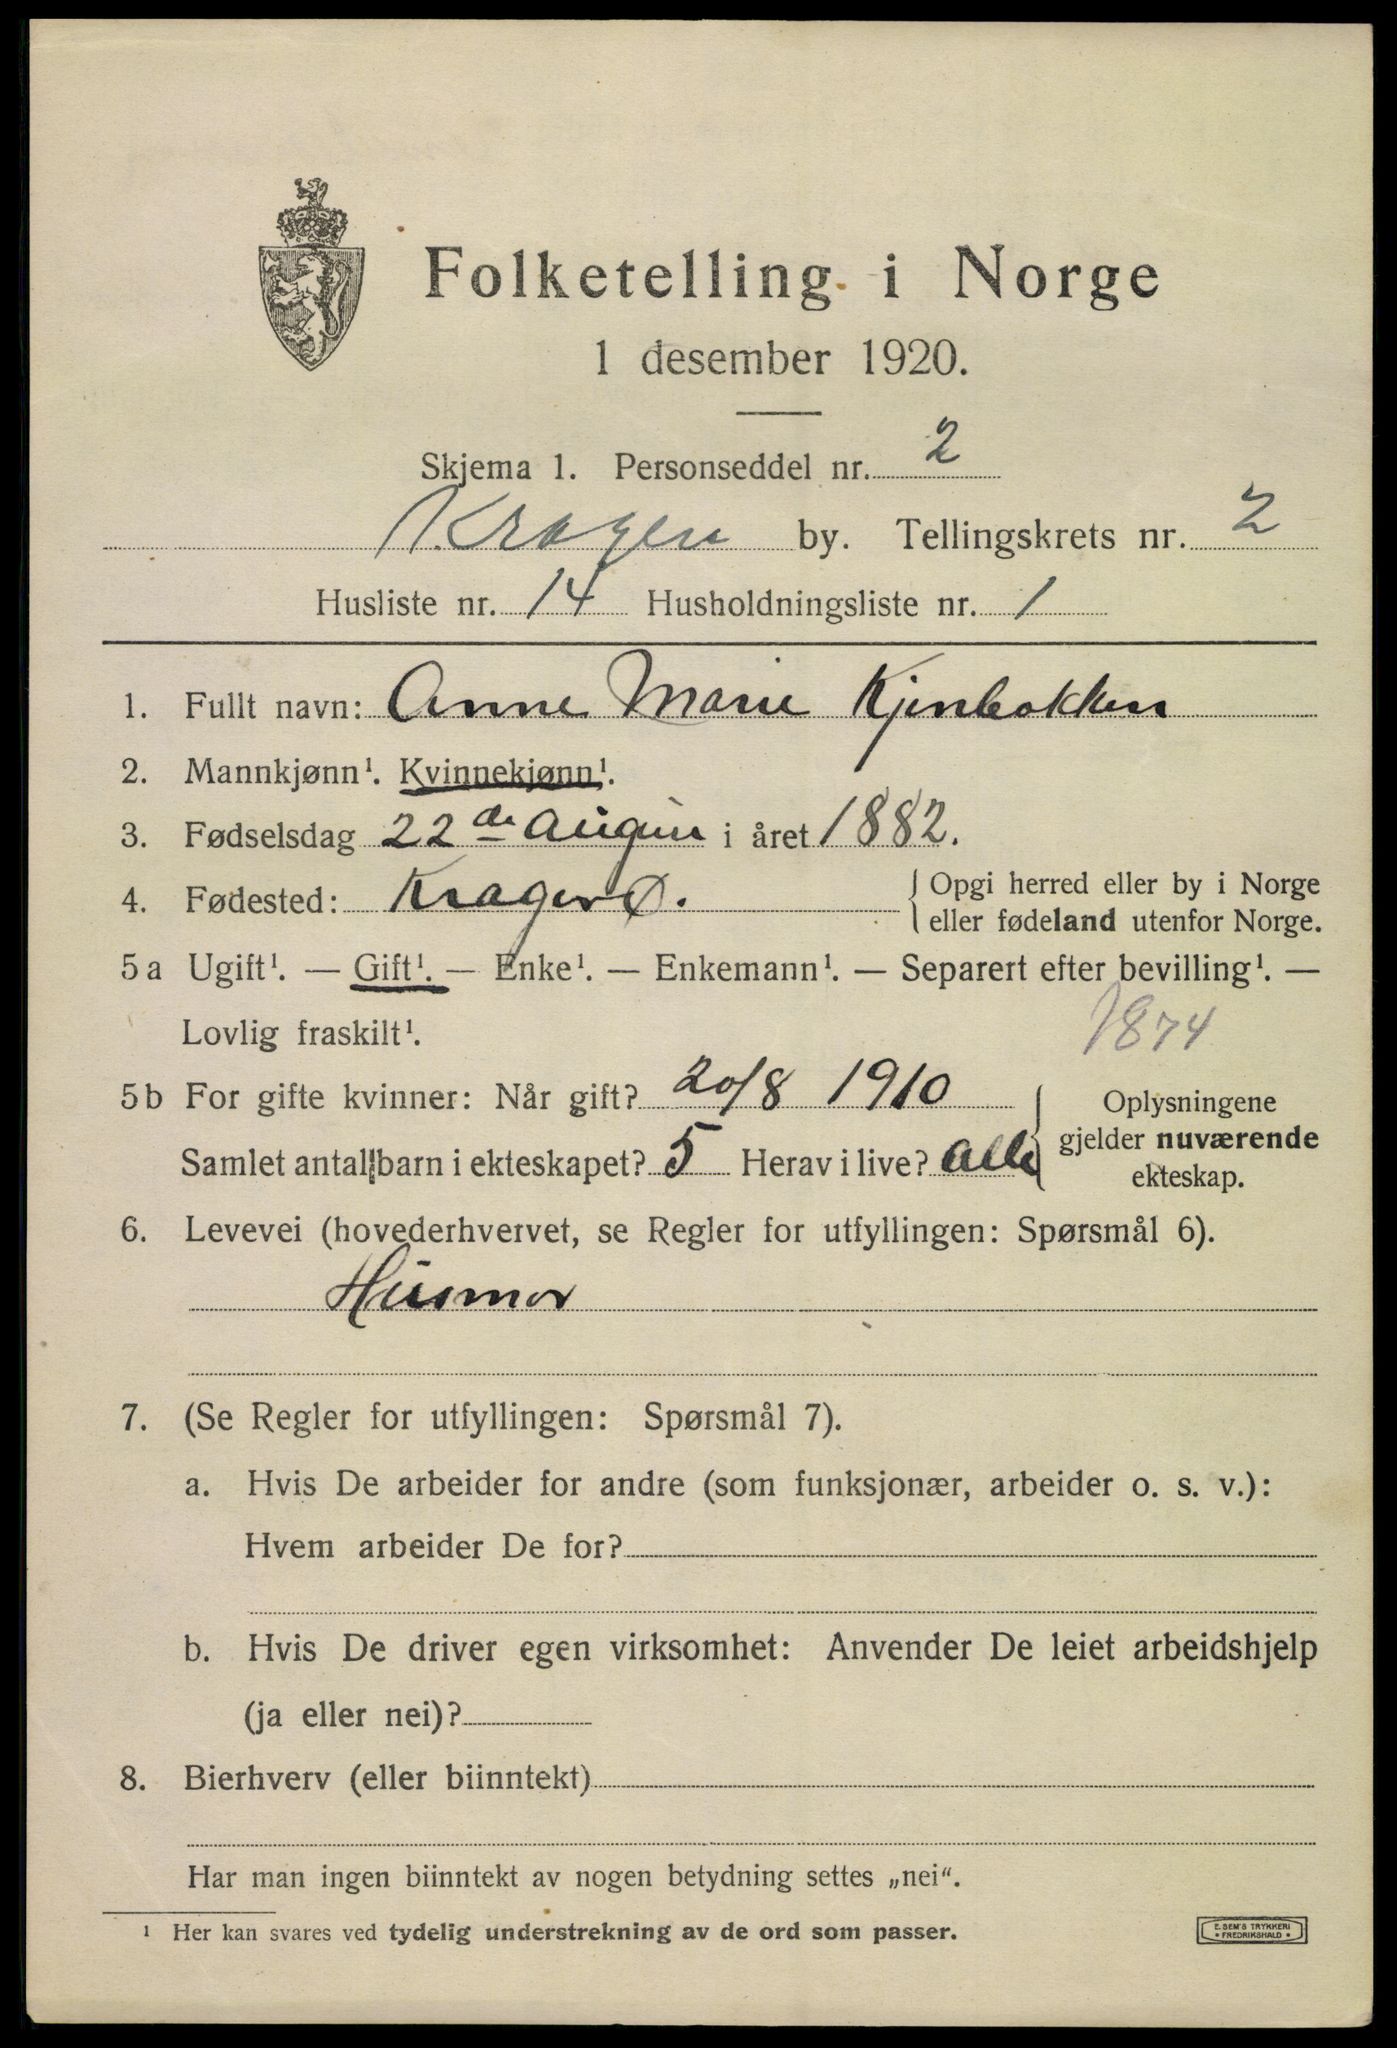 Folketelling i Norge
1 desember 1920.
Skjema 1. Personseddel nr. 2
Kragerø by. Tellingskrets nr. 2
Husliste nr. 14 Husholdningsliste nr. 1
1. Fullt navn: Anne Marie
2. Mannkjønn¹. Kvinnekjønn¹.
3. Fødselsdag 22de August i året 1882.
4. Fødested: Kragerø. { Opgi herred eller by i Norge
eller fødeland utenfor Norge.
5a Ugift¹. — Gift¹. — Enke¹. — Enkemann¹. — Separert efter bevilling¹. —
Lovlig fraskilt¹. 1874
5b For gifte kvinner: Når gift? 20/8 1910
Samlet antall barn i ekteskapet? 5 Herav i live? alle
Oplysningene
gjelder nuværende
ekteskap.
6. Levevei (hovederhvervet, se Regler for utfyllingen: Spørsmål 6).
Husmor
7. (Se Regler for utfyllingen: Spørsmål 7).
a. Hvis De arbeider for andre (som funksjonær, arbeider o. s. v.):
Hvem arbeider De for?
b. Hvis De driver egen virksomhet: Anvender De leiet arbeidshjelp
(ja eller nei)?
8. Bierhverv (eller biinntekt)
Har man ingen biinntekt av nogen betydning settes „nei“.
¹ Her kan svares ved tydelig understrekning av de ord som passer.
E. SEM'S TRYKKERI
• FREDRIKSHALD •